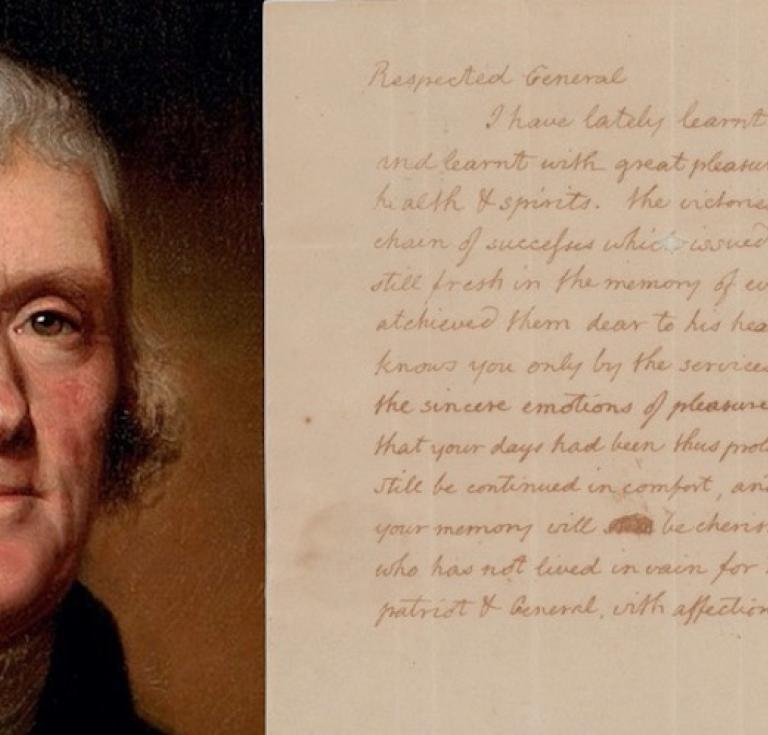 Respected General
I have lately learnt
and learnt with great pleasur
health & spirits. the victorie
chain of successes which issued
still fresh in the memory of ev
atchieved them dear to his hea
knows you only by the services
the sincere emotions of pleasure
that your days had been thus prol
still be continued in comfort, an
your memory will be cheris
who has not lived in vain for
patriot & General, with affection